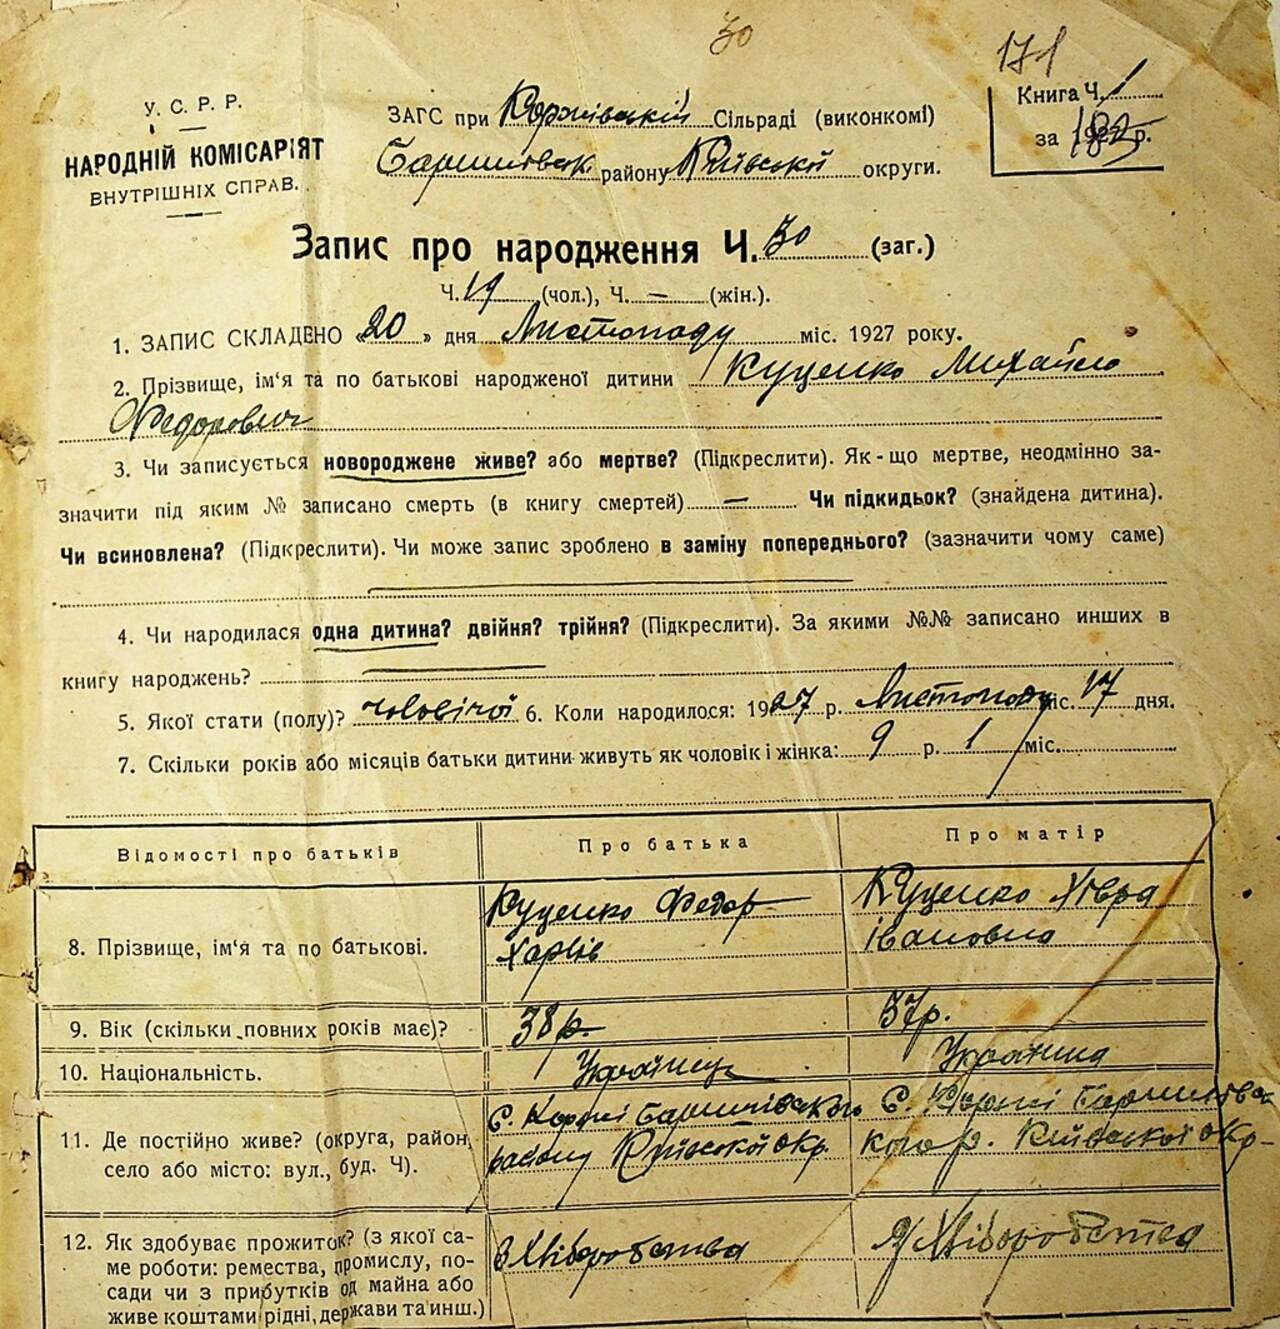 30
171
У. С. Р. Р.
НАРОДНІЙ КОМІСАРІЯТ
ВНУТРІШНІХ СПРАВ.
ЗАГС при Коржівській Сільраді (виконкомі)
Баришівськ. району Київської округи.
Книга Ч. 1
за р.
Запис про народження Ч. 30 (заг.)
Ч. 19 (чол.), Ч. — (жін.).
1. ЗАПИС СКЛАДЕНО «20» дня Листопаду міс. 1927 року.
2. Прізвище, ім‘я та по батькові народженої дитини Куценко Михайло
Федорович
3. Чи записується новороджене живе? або мертве? (Підкреслити). Як-що мертве, неодмінно за-
значити під яким № записано смерть (в книгу смертей) — Чи підкидьок? (знайдена дитина).
Чи всиновлена? (Підкреслити). Чи може запис зроблено в заміну попереднього? (зазначити чому саме)
4. Чи народилася одна дитина? двійня? трійня? (Підкреслити). За якими №№ записано инших в
книгу народжень?
5. Якої стати (полу)? чоловічої 6. Коли народилося: 1927 р. Листопаду міс. 17 дня.
7. Скільки років або місяців батьки дитини живуть як чоловік і жінка: 9 р. 1 міс.
Відомості про батьків Про батька Про матір
8. Прізвище, ім‘я та по батькові.
Куценко Федор
Харків
Куценко Хівря
Івановна
9. Вік (скільки повних років має)? 38 р. 37 р.
10. Національність. Українець Українка
11. Де постійно живе? (округа, район,
село або місто: вул., буд. Ч).
С. Коржі Баришівського
району Київської окр.
С. Коржі Баришівсь
кого р. Київської окр-
12. Як здобуває прожиток? (з якої са-
ме роботи: ремества, промислу, по-
сади чи з прибутків од майна або
живе коштами рідні, держави та инш.)
З Хліборобства
З Хліборобства